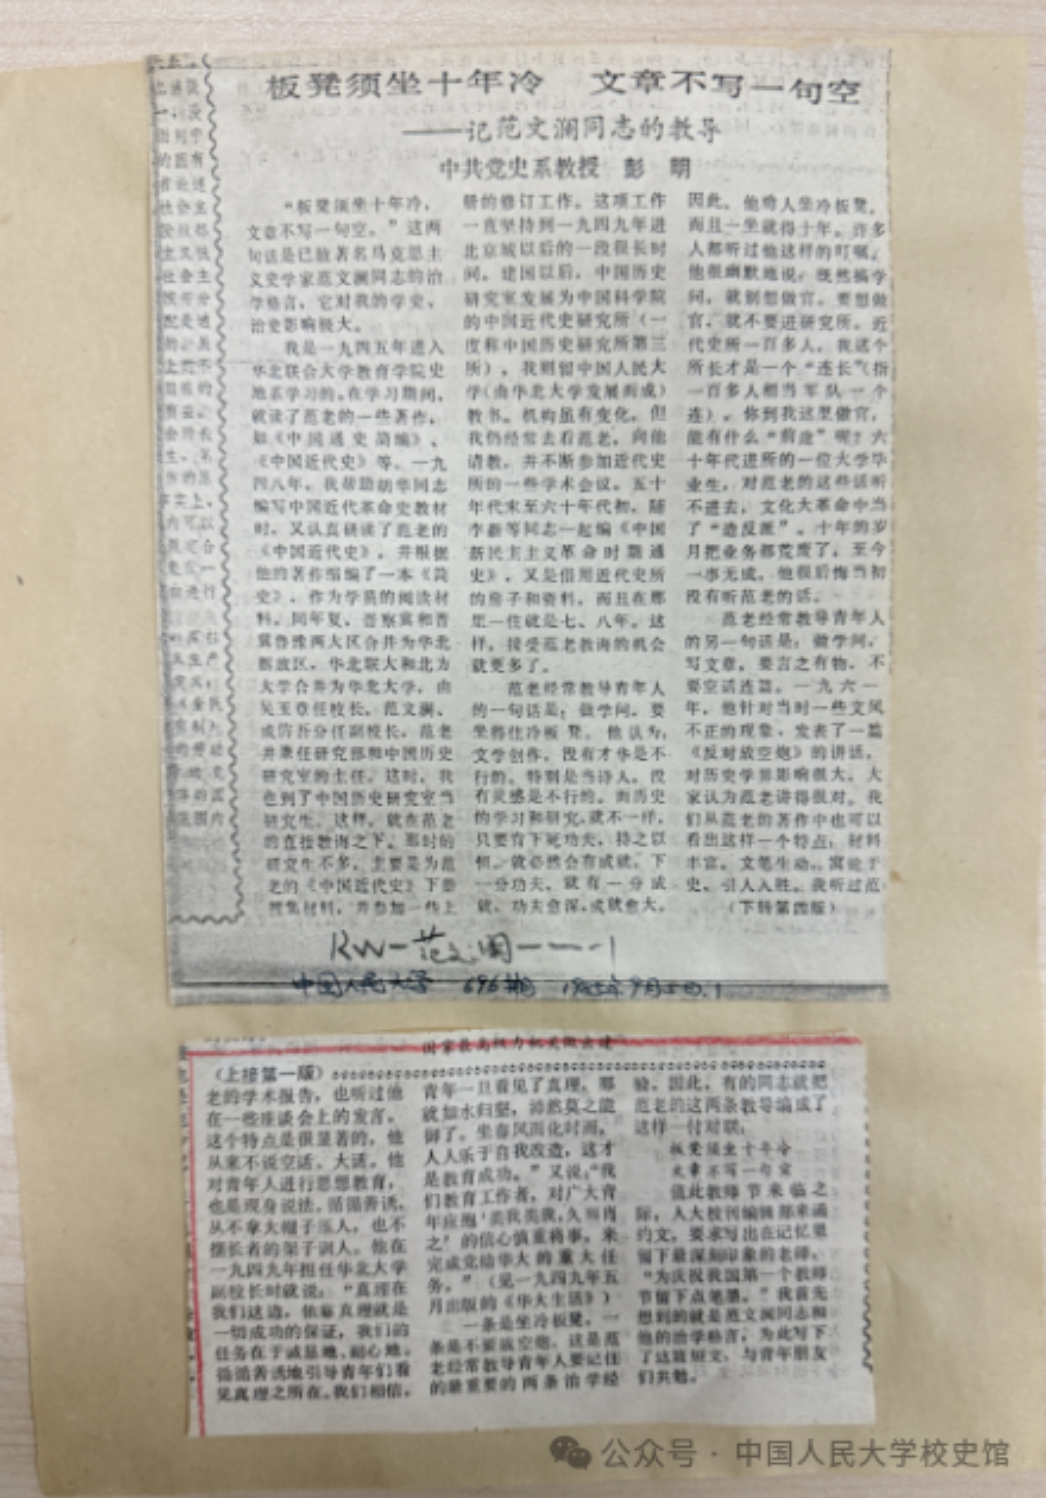 板凳须坐十年冷 文章不写一句空
——记范文澜同志的教导
中共党史系教授 彭 明
“板凳须坐十年冷,
文章不写一句空。”这两
句话是已故著名马克思主
义史学家范文澜同志的治
学格言,它对我的学史、
治史影响极大。
我是一九四五年进入
华北联合大学教育学院史
地系学习的。在学习期间,
就读了范老的一些著作,
如《中国通史简编》、
《中国近代史》等。一九
四八年,我帮助胡华同志
编写中国近代革命史教材
时,又认真研读了范老的
《中国近代史》,并根据
他的著作缩编了一本《简
史》,作为学员的阅读材
料。同年夏,晋察冀和晋
冀鲁豫两大区合并为华北
解放区,华北联大和北方
大学合并为华北大学,由
吴玉章任校长,范文澜、
成仿吾分任副校长,范老
并兼任研究部和中国历史
研究室的主任。这时,我
也到了中国历史研究室当
研究生。这样,就在范老
的直接教诲之下。那时的
研究生不多,主要是为范
老的《中国近代史》下册
搜集材料,并参加一些上
册的修订工作。这项工作
一直坚持到一九四九年进
北京城以后的一段很长时
间。建国以后,中国历史
研究室发展为中国科学院
的中国近代史研究所(一
度称中国历史研究所第三
所),我则留中国人民大
学(由华北大学发展而成)
教书。机构虽有变化,但
我仍经常去看范老,向他
请教,并不断参加近代史
所的一些学术会议。五十
年代末至六十年代初,随
李新等同志一起编《中国
新民主主义革命时期通
史》,又是借用近代史所
的房子和资料,而且在那
里一住就是七、八年。这
样,接受范老教诲的机会
就更多了。
范老经常教导青年人
的一句话是:做学问,要
坐得住冷板凳。他认为,
文学创作,没有才华是不
行的。特别是当诗人,没
有灵感是不行的。而历史
的学习和研究,就不一样,
只要肯下死功夫,持之以
恒,就必然会有成就。下
一分功夫,就有一分成
就,功夫愈深,成就愈大。
因此,他劝人坐冷板凳,
而且一坐就得十年。许多
人都听过他这样的叮嘱。
他很幽默地说:既然搞学
问,就别想做官。要想做
官,就不要进研究所。近
代史所一百多人,我这个
所长才是一个“连长”(指
一百多人相当军队一个
连)。你到我这里做官,
能有什么“前途”呢?六
十年代进所的一位大学毕
业生,对范老的这些话听
不进去,文化大革命中当
了“造反派”。十年的岁
月把业务都荒废了,至今
一事无成。他很后悔当初
没有听范老的话。
范老经常教导青年人
的另一句话是:做学问,
写文章,要言之有物,不
要空话连篇。一九六一
年,他针对当时一些文风
不正的现象,发表了一篇
《反对放空炮》的讲话,
对历史学界影响很大。大
家认为范老讲得很对。我
们从范老的著作中也可以
看出这样一个特点:材料
丰富,文笔生动,寓论于
史,引人入胜。我听过范
(下转第四版)
RW—范文澜—一—1
中国人民大学 696期 1985年9月5日.1
(上接第一版)
老的学术报告,也听过他
在一些座谈会上的发言。
这个特点是很显著的,他
从来不说空话、大话。他
对青年人进行思想教育,
也是现身说法,循循善诱,
从不拿大帽子压人,也不
摆长者的架子训人。他在
一九四九年担任华北大学
副校长时就说:“真理在
我们这边,依靠真理就是
一切成功的保证,我们的
任务在于诚恳地、耐心地、
循循善诱地引导青年们看
见真理之所在。我们相信,
青年一旦看见了真理,那
就如水归壑,沛然莫之能
御了。坐春风而化时雨,
人人乐于自我改造,这才
是教育成功。”又说:“我
们教育工作者,对广大青
年应抱‘类我类我,久则肖
之’的信心慎重将事,来
完成党给华大的重大任
务。”(见一九四九年五
月出版的《华大生活》)
一条是坐冷板凳,一
条是不要放空炮。这是范
老经常教导青年人要记住
的最重要的两条治学经
验。因此,有的同志就把
范老的这两条教导编成了
这样一付对联:
板凳须坐十年冷
文章不写一句空
值此教师节来临之
际,人大校刊编辑部来函
约文,要求写出在记忆里
留下最深刻印象的老师,
“为庆祝我国第一个教师
节留下点笔墨。”我首先
想到的就是范文澜同志和
他的治学格言,为此写下
了这篇短文,与青年朋友
们共勉。
公众号·中国人民大学校史馆